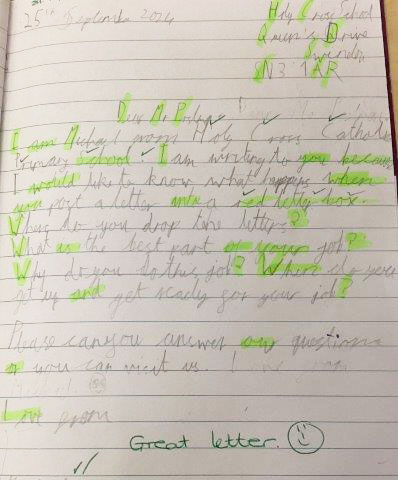 25th September 2024
Holy Cross School
Queen's Drive
Swindon
SN3 1AR
Dear Mr
I am Michael from Holy Cross Catholic
Primary School. I am writing to you because
I would like to know what happens when
you post a letter into a red letter box.
do you drop the letters?
What is the best part of your job?
Why do you do this job? When do you
get up and get ready for your job?
Please can you answer our questions
or you can visit us.
Love from
Great letter.